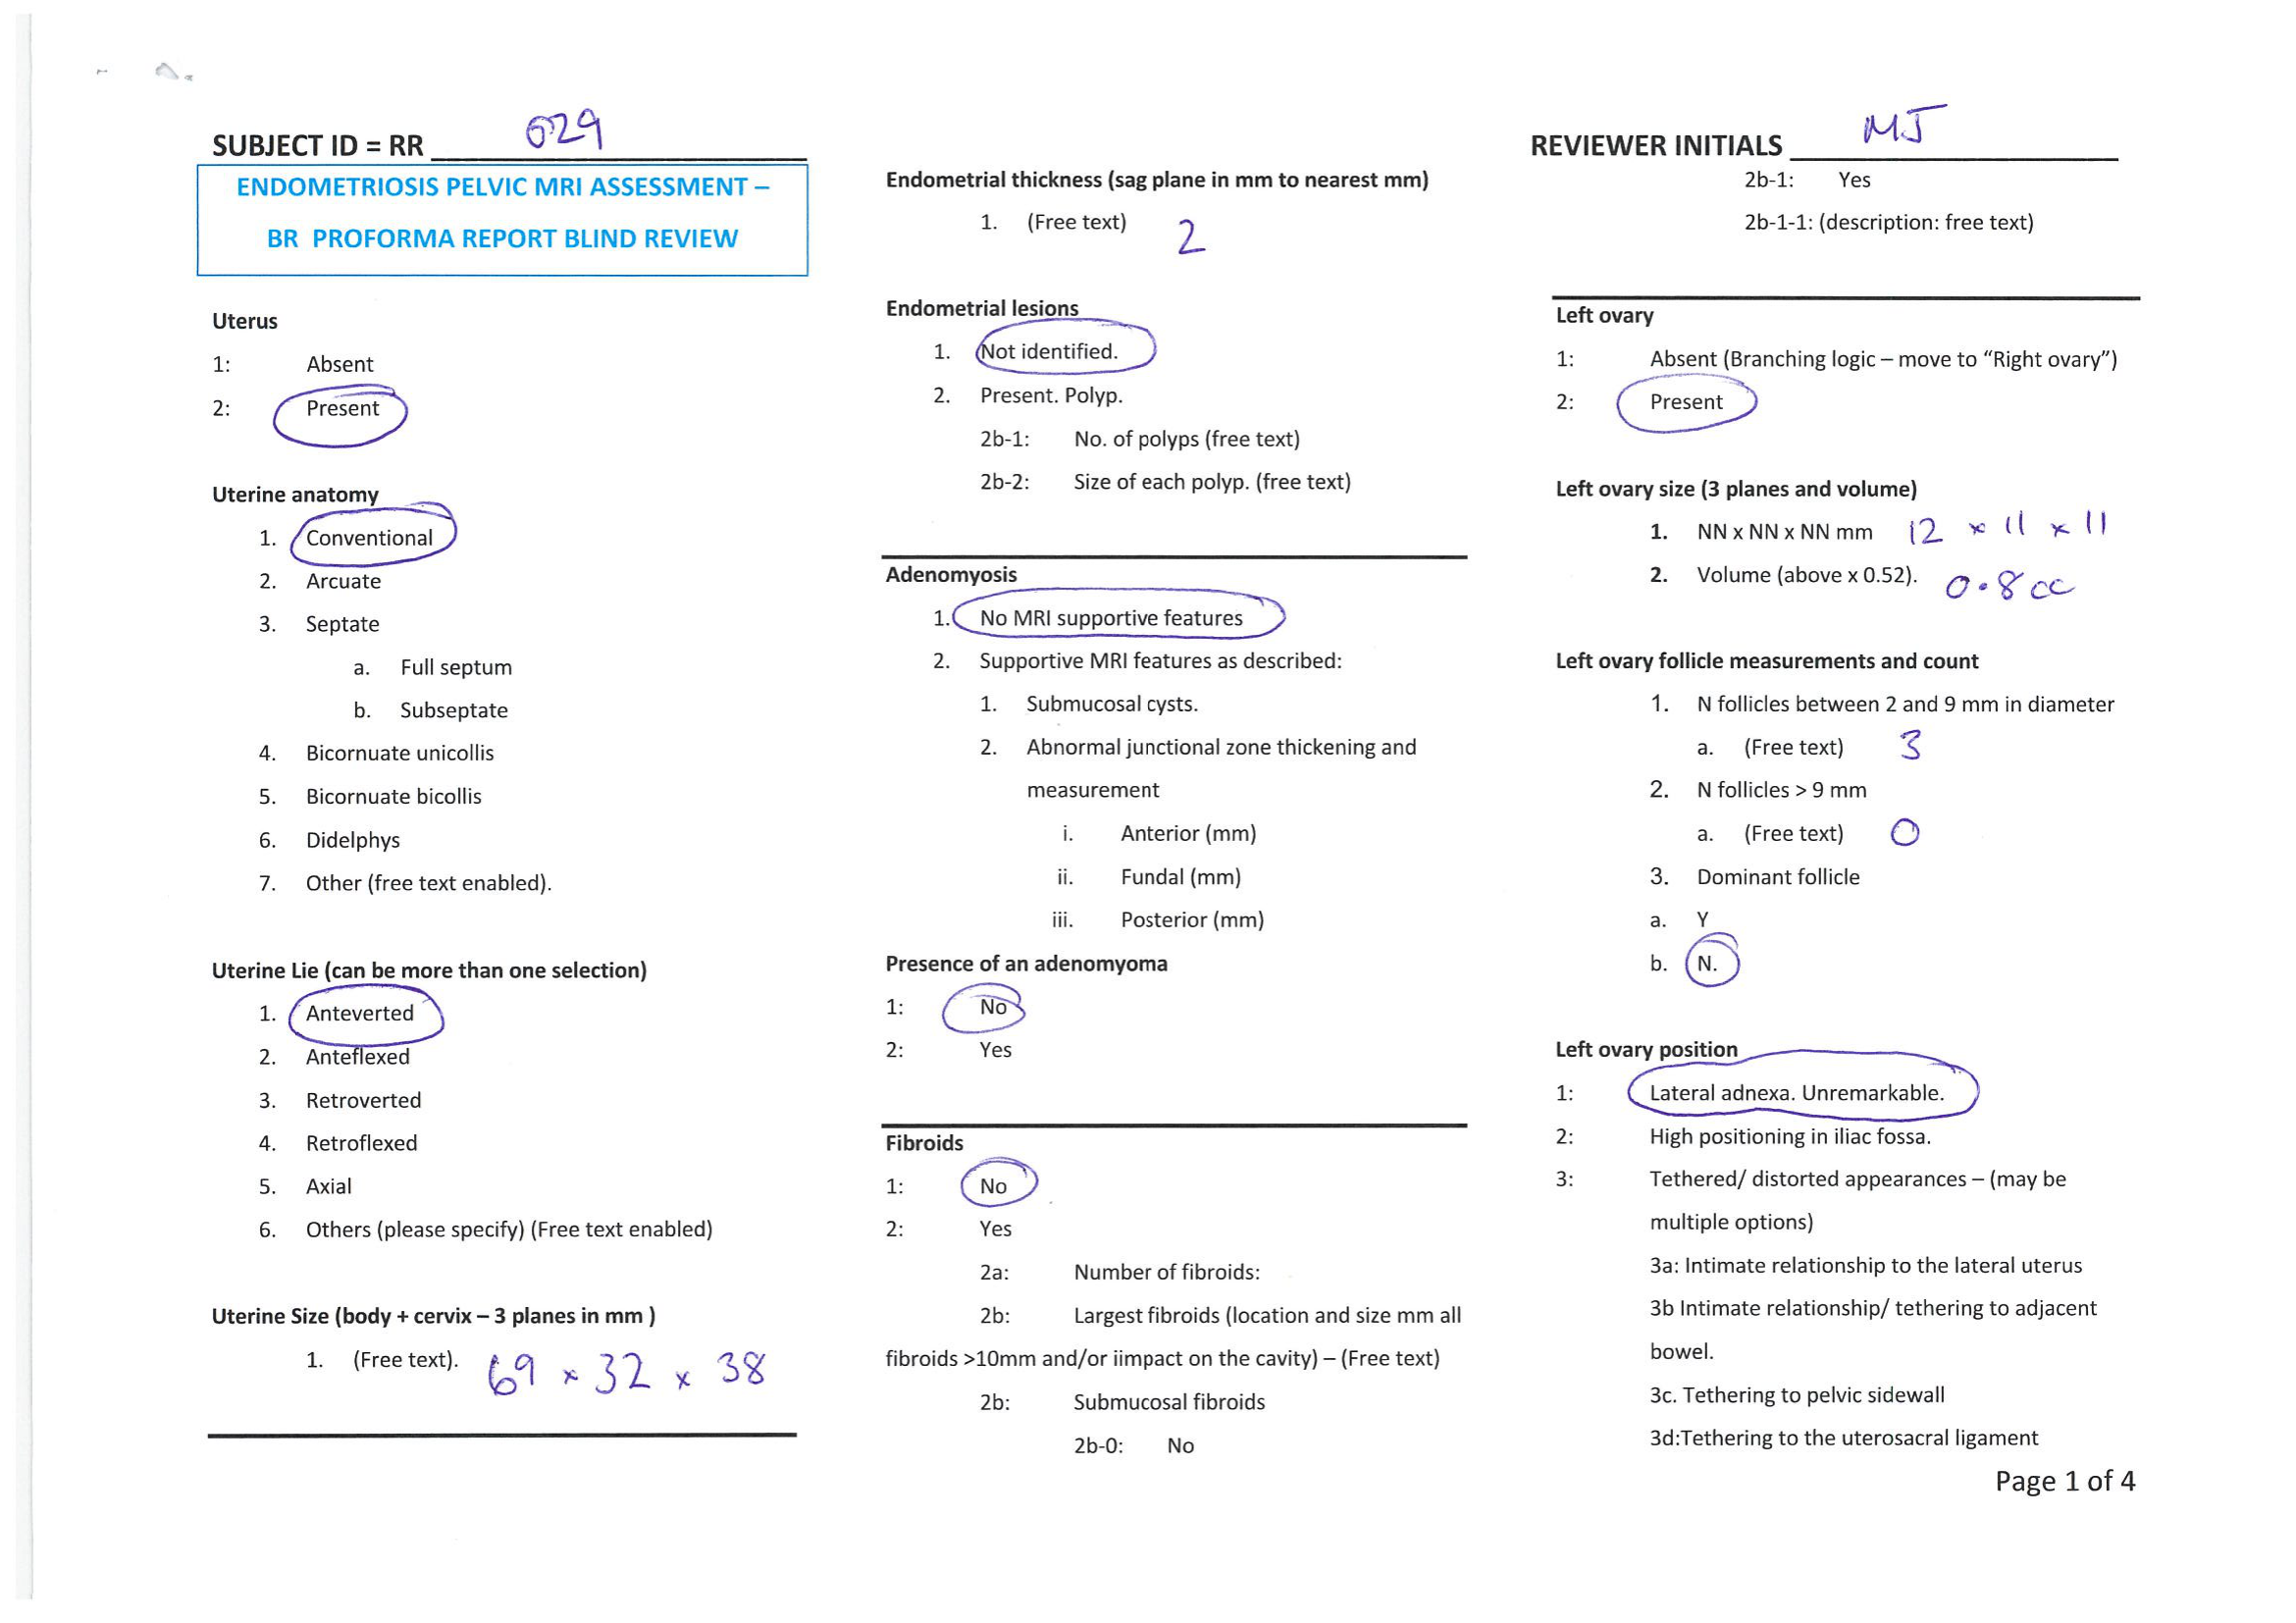 SUBJECT ID = RR 029
ENDOMETRIOSIS PELVIC MRI ASSESSMENT –
BR PROFORMA REPORT BLIND REVIEW
Uterus
1: Absent
2: Present
Uterine anatomy
1. Conventional
2. Arcuate
3. Septate
a. Full septum
b. Subseptate
4. Bicornuate unicollis
5. Bicornuate bicollis
6. Didelphys
7. Other (free text enabled).
Uterine Lie (can be more than one selection)
1. Anteverted
2. Anteflexed
3. Retroverted
4. Retroflexed
5. Axial
6. Others (please specify) (Free text enabled)
Uterine Size (body + cervix – 3 planes in mm )
1. (Free text). 69 x 32 x 38
Endometrial thickness (sag plane in mm to nearest mm)
1. (Free text) 2
Endometrial lesions
1. Not identified.
2. Present. Polyp.
2b-1: No. of polyps (free text)
2b-2: Size of each polyp. (free text)
Adenomyosis
1. No MRI supportive features
2. Supportive MRI features as described:
1. Submucosal cysts.
2. Abnormal junctional zone thickening and
measurement
i. Anterior (mm)
ii. Fundal (mm)
iii. Posterior (mm)
Presence of an adenomyoma
1: No
2: Yes
Fibroids
1: No
2: Yes
2a: Number of fibroids:
2b: Largest fibroids (location and size mm all
fibroids >10mm and/or iimpact on the cavity) – (Free text)
2b: Submucosal fibroids
2b-0: No
REVIEWER INITIALS MJ
2b-1: Yes
2b-1-1: (description: free text)
Left ovary
1: Absent (Branching logic – move to “Right ovary”)
2: Present
Left ovary size (3 planes and volume)
1. NN x NN x NN mm 12 x 11 x 11
2. Volume (above x 0.52). 0.8 cc
Left ovary follicle measurements and count
1. N follicles between 2 and 9 mm in diameter
a. (Free text) 3
2. N follicles > 9 mm
a. (Free text) 0
3. Dominant follicle
a. Y
b. N.
Left ovary position
1: Lateral adnexa. Unremarkable.
2: High positioning in iliac fossa.
3: Tethered/ distorted appearances – (may be
multiple options)
3a: Intimate relationship to the lateral uterus
3b Intimate relationship/ tethering to adjacent
bowel.
3c. Tethering to pelvic sidewall
3d:Tethering to the uterosacral ligament
Page 1 of 4